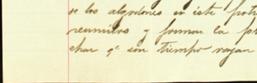 se los algodones en este
reunirlos y forman la
char qe con tiempo vayan